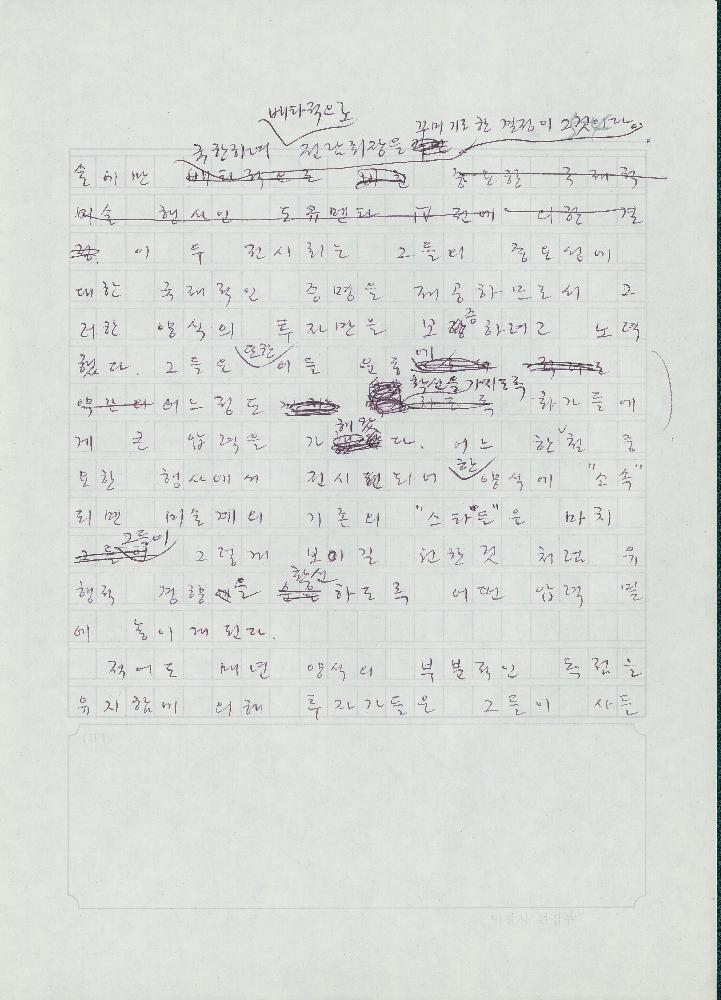 배타적으로
꾸며 기로 한 결정이 그것이다.
국한하며 전람회장을
술에만 배타적으로 중요한 국제적
미술 행사인 도큐멘타 에 의한 결
이 두 전시회는 그들의 중요성에
대한 국제적인 증명을 제공하므로서 그
러한 양식의 투자만을 보증하려고 노력
했다. 그들은 또한 이들 운동에
어느정도 확신을 가지도록 화가들에
게 큰 압력을 가해왔다. 어느 한 철 중
요한 행사에서 전시되어 한 양식에 "소속"
되면 미술계의 기존의 "스타들"은 마치
그들이 그렇게 보이길 원한것 처럼 유
행적 경향을 확신하도록 어떤 압력 밑
에 놓이게 된다.
적어도 매년 양식의 부분적인 독점을
유지함에 의해 투자가들은 그들이 사들